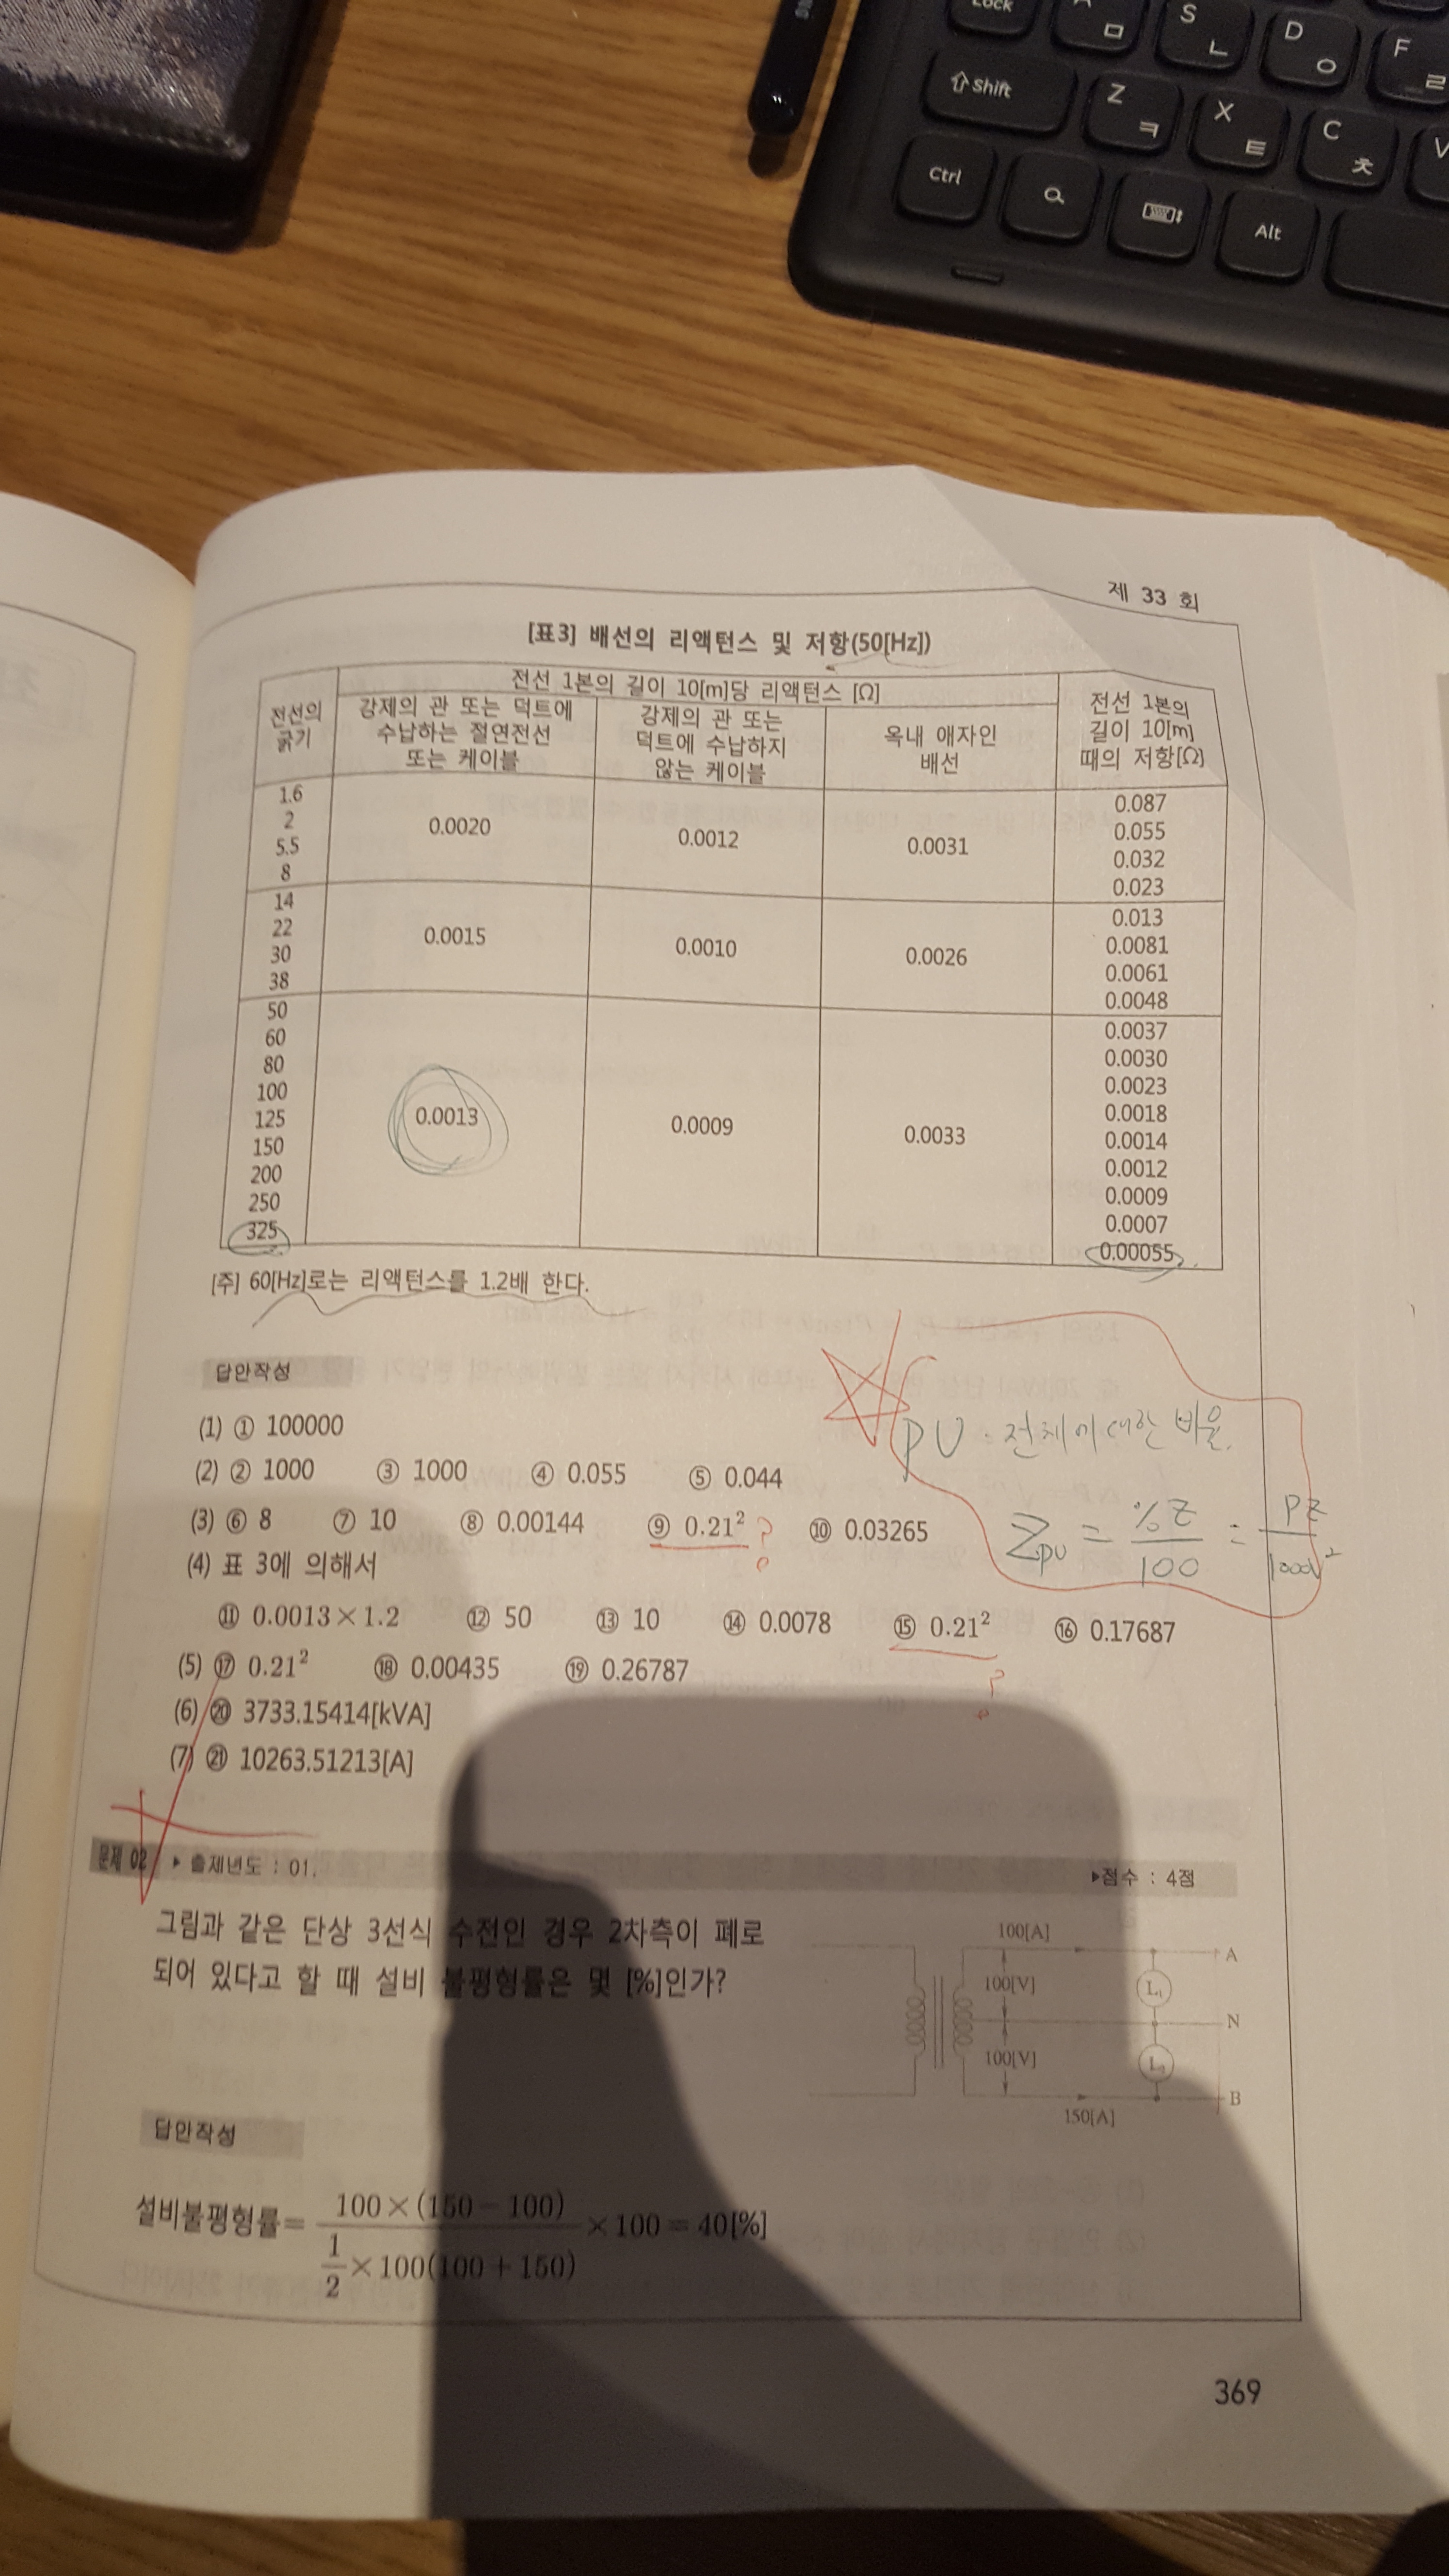 Lock
A ㅁ
S ㄴ
D ㅇ
F ㄹ
Shift
Z ㅋ
X ㅌ
C ㅊ
V
Ctrl
Alt
제 33 회
[표3] 배선의 리액턴스 및 저항(50[Hz])
전선의 굵기
전선 1본의 길이 10[m]당 리액턴스 [Ω]
강제의 관 또는 덕트에 수납하는 절연전선 또는 케이블
강제의 관 또는 덕트에 수납하지 않는 케이블
옥내 애자인 배선
전선 1본의 길이 10[m] 때의 저항[Ω]
1.6
2
5.5
8
0.0020
0.0012
0.0031
0.087
0.055
0.032
0.023
14
22
30
38
0.0015
0.0010
0.0026
0.013
0.0081
0.0061
0.0048
50
60
80
100
125
150
200
250
325
0.0013
0.0009
0.0033
0.0037
0.0030
0.0023
0.0018
0.0014
0.0012
0.0009
0.0007
0.00055
[주] 60[Hz]로는 리액턴스를 1.2배 한다.
답안작성
(1) ① 100000
(2) ② 1000 ③ 1000 ④ 0.055 ⑤ 0.044
(3) ⑥ 8 ⑦ 10 ⑧ 0.00144 ⑨ 0.21² ? ⑩ 0.03265
(4) 표 3에 의해서
⑪ 0.0013×1.2 ⑫ 50 ⑬ 10 ⑭ 0.0078 ⑮ 0.21² ⑯ 0.17687
?
(5) ⑰ 0.21² ⑱ 0.00435 ⑲ 0.26787
(6) ⑳ 3733.15414[kVA]
(7) ㉑ 10263.51213[A]
PU · 전체에 대한 비율.
Zpu = %Z/100 = PZ/1000V²
문제 02 ▶ 출제년도 : 01. ▶점수 : 4점
그림과 같은 단상 3선식 수전인 경우 2차측이 폐로
되어 있다고 할 때 설비 불평형률은 몇 [%]인가?
100[A]
A
100[V]
L₁
N
100[V]
L₂
B
150[A]
답안작성
설비불평형률= 100×(150-100) / ½×100(100+150) ×100=40[%]
369